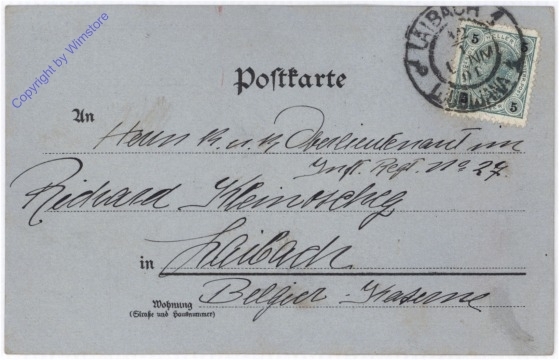 Copyright by Wimstore
LAIBACH 1
LJUBLJANA
5
5
Postkarte
An
Herrn k. u. k. Oberleutenant im
Inft. Regt. No 27
Richard Kleinoscheg
in Laibach
Wohnung Belgier-Kaserne
(Straße und Hausnummer)